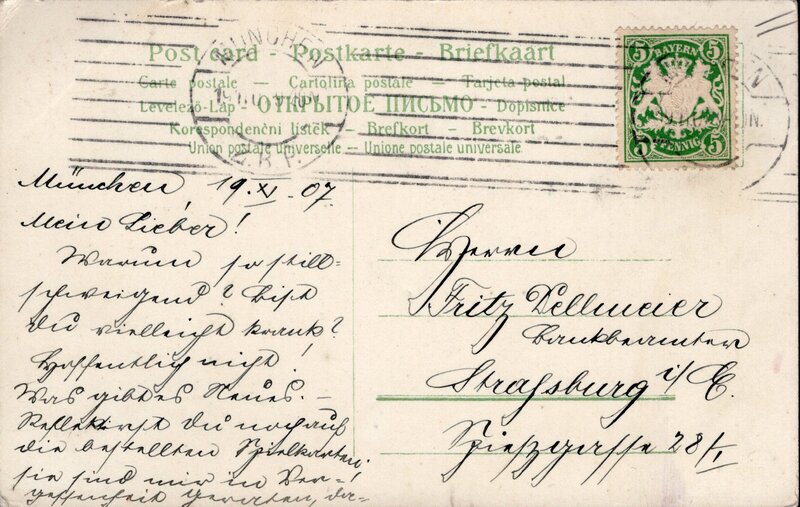 Post card - Postkarte - Briefkaart
Carte postale — Cartolina postale — Tarjeta postal
Levelező-Lap — ОТКРЫТОЕ ПИСЬМО — Dopisnice
Korespondenční listek — Brefkort — Brevkort
Union postale universelle — Unione postale universale
MÜNCHEN
5 BAYERN 5
5 PFENNIG 5
München, 19. XI. 07
Mein Lieber!
Warum so still-
schweigend? Bist
du vielleicht krank?
Hoffentlich nicht!
Was gibt es Neues. -
Reflektirst du noch auf
die bestellten Spielkarten,
sie sind mir in Ver-
gessenheit geraten, da-
Herrn
Fritz Dellmeier
Bankbeamter
Strassburg i/E.
28/I